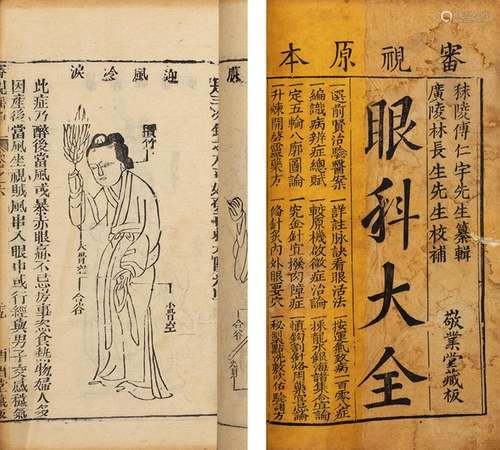 審視原本
秣陵傅仁宇先生纂輯
廣陵林長生先生校補
敬業堂藏板
眼科大全
一選前賢治驗醫案
編識病辨症總賦
定五輪八廓圖論
升煉開瞽靈藥方
詳註脉訣看眼活法
較原機啟微症治論
究金針正撥內障症
繪針灸內外眼要穴
按運氣致病一百零八症
採龍木銀海諸集合宜論
慎鈎割針烙用藥宜忌論
秘製點洗敷灸佑驗諸方
迎風冷淚
攢竹
大骨空
合谷
小骨空
合谷
此症乃醉後當風或暴赤眼痛不忌房事恣食熱物婦人多
因產後當風坐視賊風串入眼中或行經與男子交感穢氣